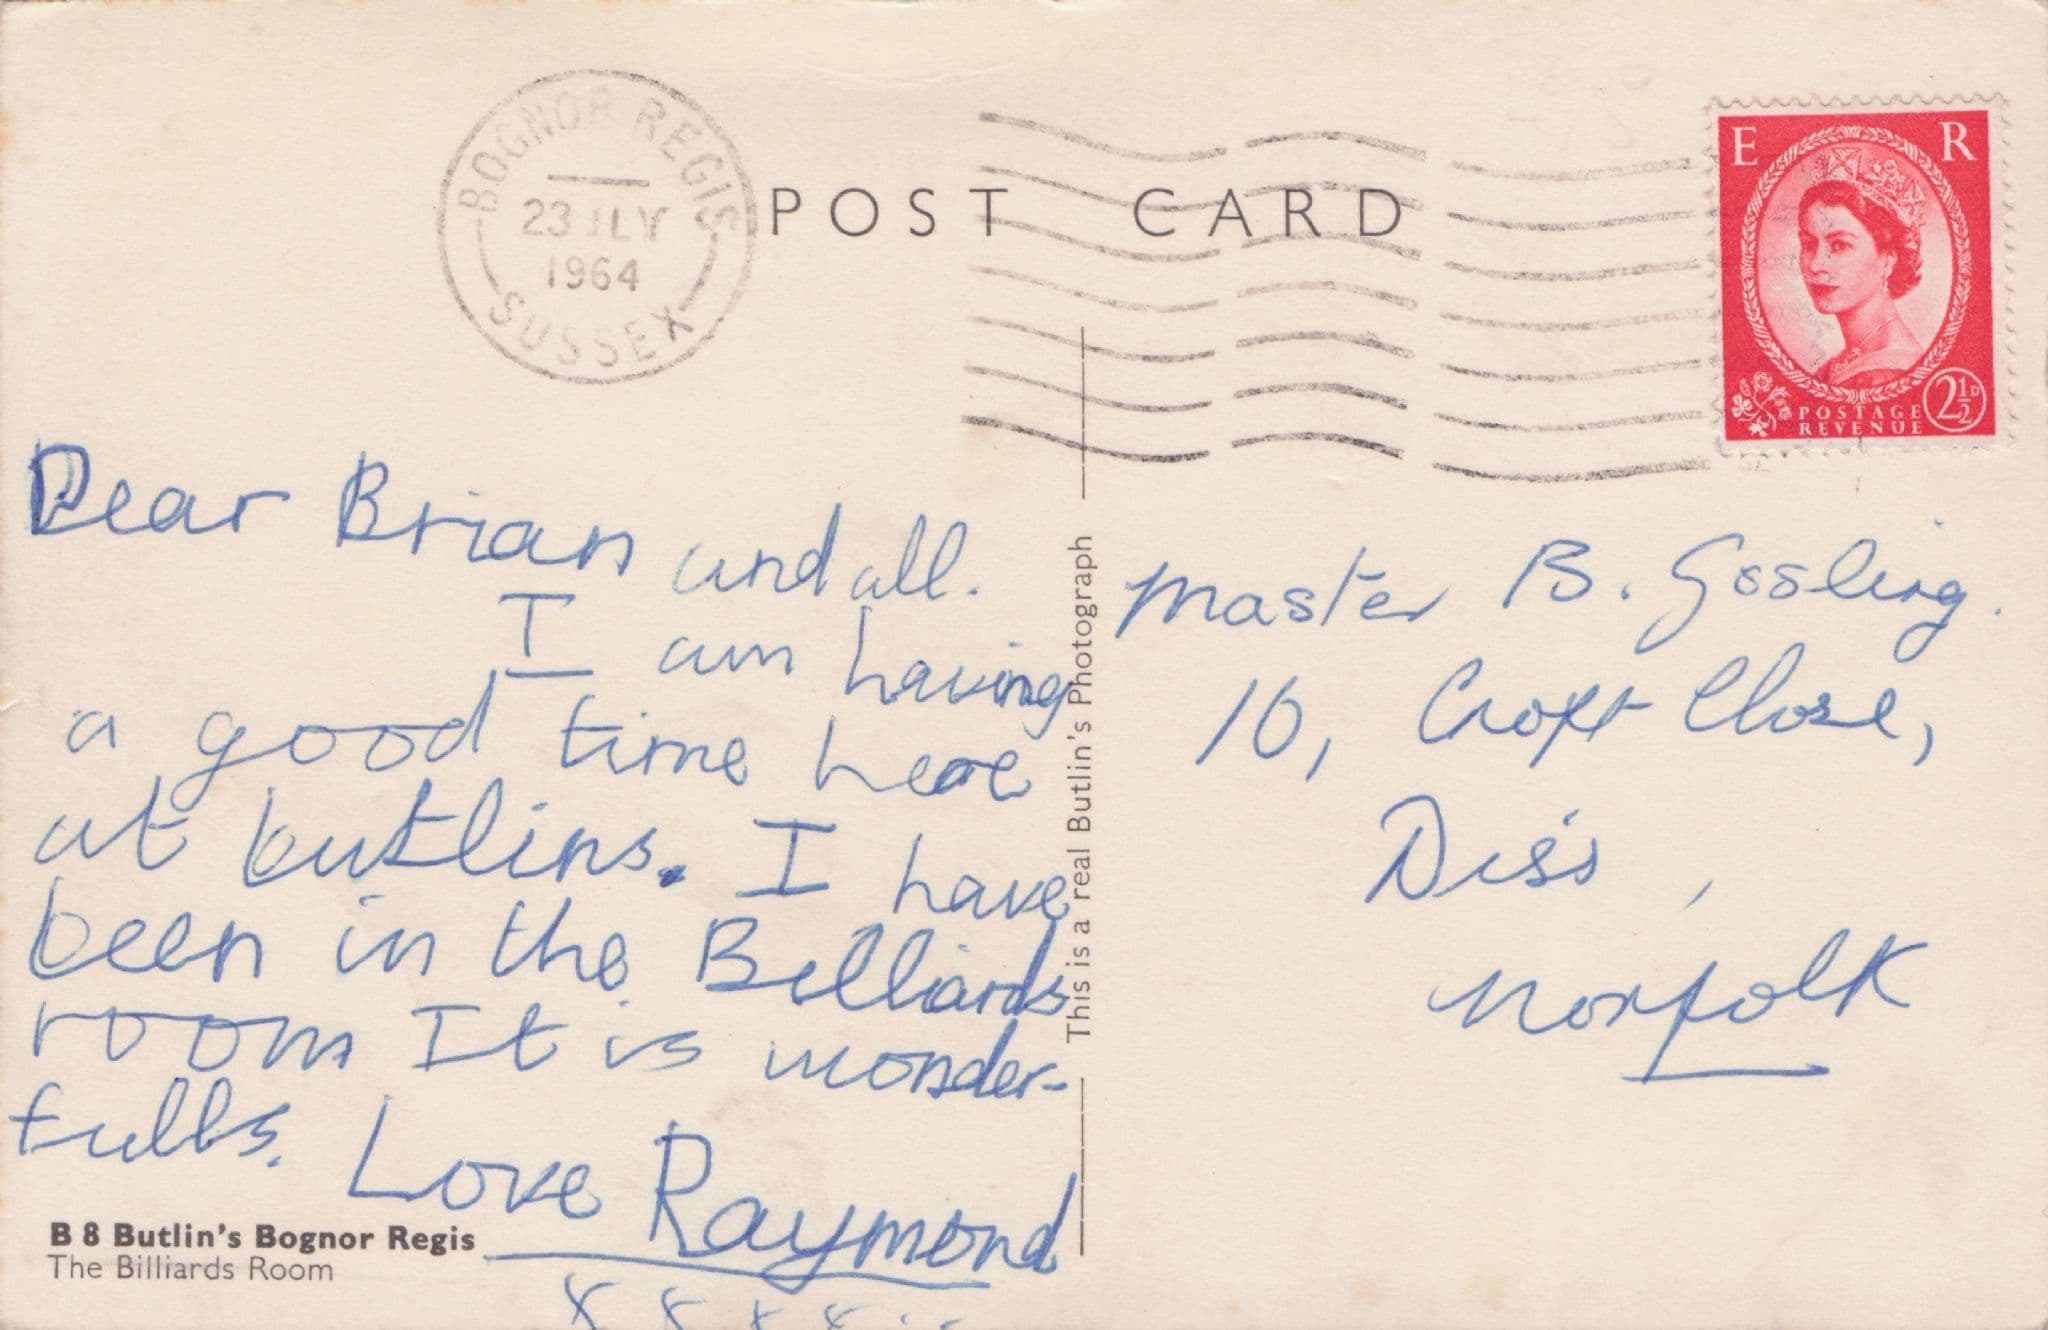 BOGNOR REGIS
23 JLY
1964
SUSSEX
POST CARD
E R
POSTAGE
REVENUE
2½D
Dear Brian and all.
I am having
a good time here
at butlins. I have
been in the Billiards
room It is wonder-
fulls. Love Raymond
x x x x
B 8 Butlin's Bognor Regis
The Billiards Room
This is a real Butlin's Photograph
Master B. Gosling.
16, Croft Close,
Diss,
Norfolk